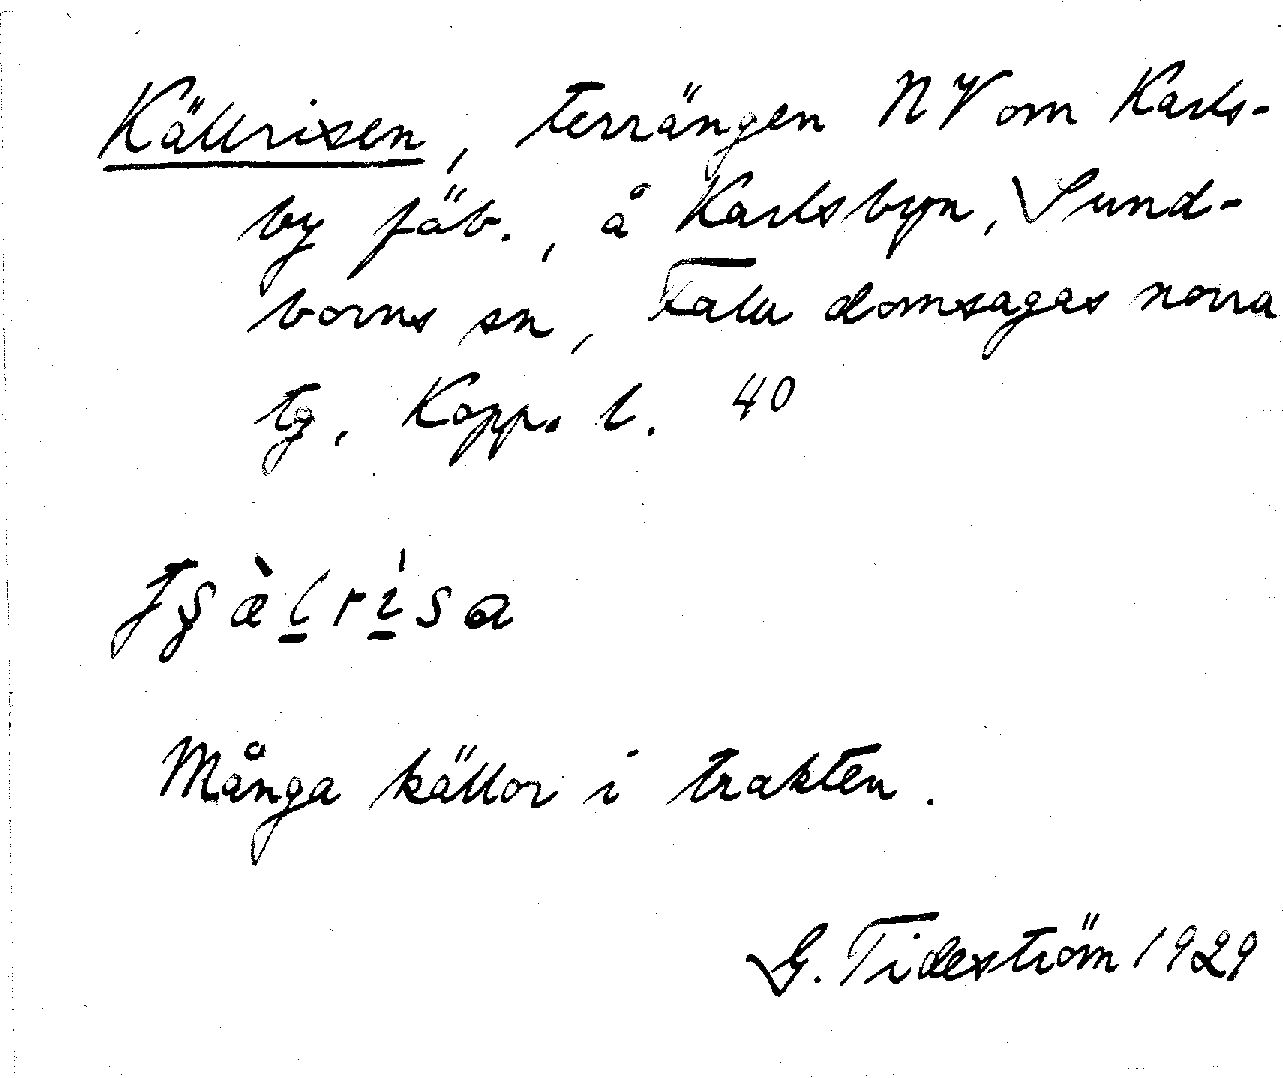 Källrisen, terrängen NV om Karls-
by fäb., å Karlsbyn, Sund-
borns sn, Falu domsagas norra
tg, Kopp. l. 40
Många källor i trakten.
G. Tideström 1929